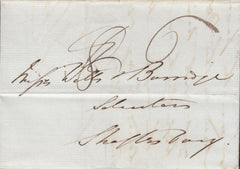 8
Messrs & Burridge
Solicitors
Shaftesbury